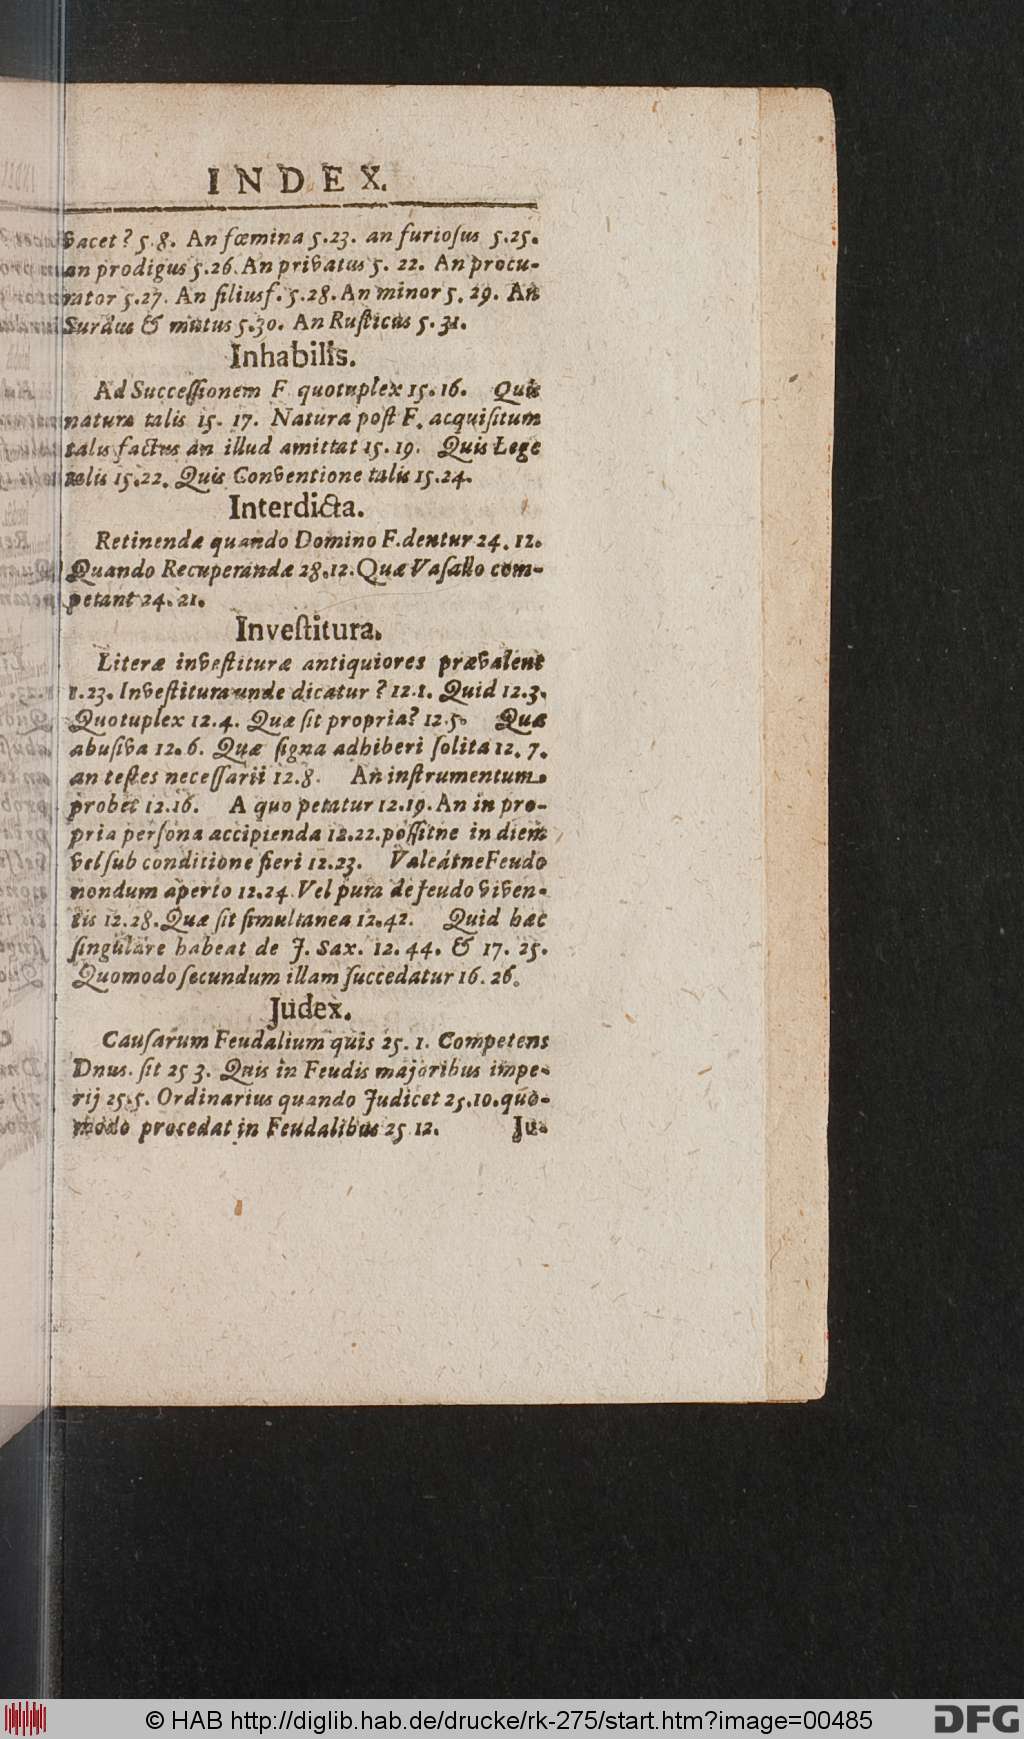 INDEX.
vacet? 5.8. An fœmina 5.23. an furioſus 5.25.
an prodigus 5.26. An privatus 5. 22. An procu-
rator 5.27. An filiusf. 5.28. An minor 5. 29. An
Surdus & mutus 5.30. An Ruſticus 5. 31.
Inhabilis.
Ad Succeſſionem F quotuplex 15. 16. Quis
natura talis 15. 17. Natura poſt F. acquiſitum
talis factus an illud amittat 15. 19. Quis Lege
talis 15.22. Quis Conventione talis 15.24.
Interdicta.
Retinendæ quando Domino F. dentur 24. 12.
Quando Recuperandæ 28.12. Quæ Vaſallo com-
petant 24. 21.
Inveſtitura.
Literæ inveſtituræ antiquiores prævalent
1.23. Inveſtitura unde dicatur? 12.1. Quid 12.3.
Quotuplex 12.4. Quæ ſit propria? 12.5. Quæ
abuſiva 12.6. Quæ ſigna adhiberi ſolita 12. 7.
an teſtes neceſſarii 12.8. An inſtrumentum
probet 12.16. A quo petatur 12.19. An in pro-
pria perſona accipienda 12.22. poſſitne in diem
vel ſub conditione fieri 12.23. Valeatne Feudo
nondum aperto 12.24. Vel pura de feudo viven-
tis 12.28. Quæ ſit ſimultanea 12.42. Quid hæc
ſingulare habeat de J. Sax. 12. 44. & 17. 25.
Quomodo ſecundum illam ſuccedatur 16. 26.
Judex.
Cauſarum Feudalium quis 25. 1. Competens
Dnus. ſit 25 3. Quis in Feudis majoribus impe-
rij 25.5. Ordinarius quando Judicet 25.10. quo-
modo procedat in Feudalibus 25 12. Ju-
© HAB http://diglib.hab.de/drucke/rk-275/start.htm?image=00485
DFG